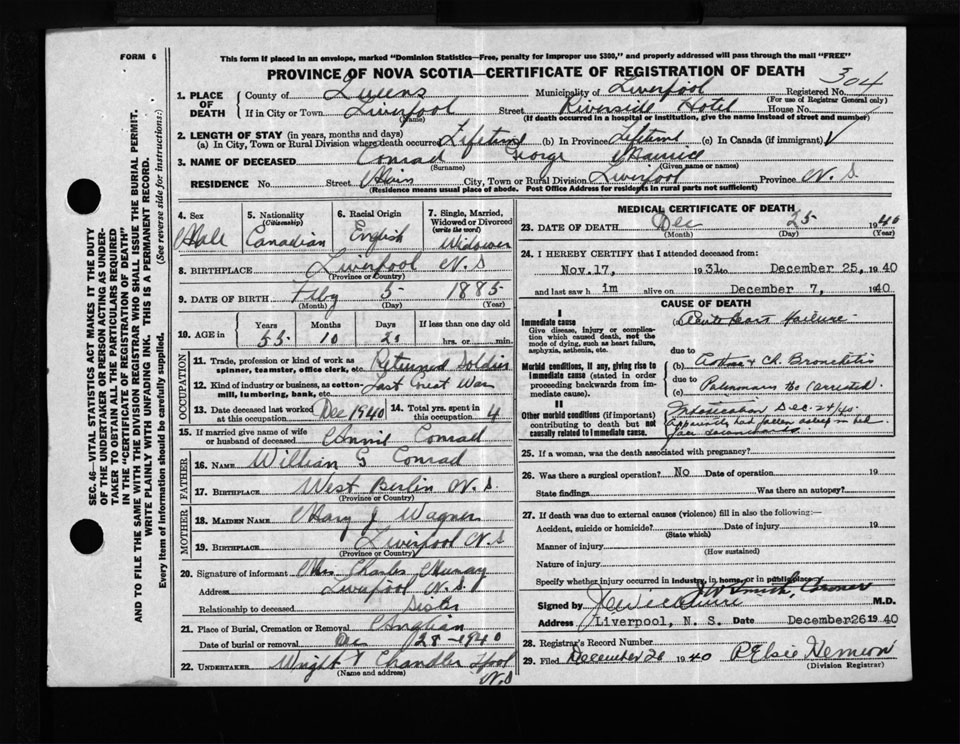 FORM 6
This form if placed in an envelope, marked "Dominion Statistics—Free, penalty for improper use $300," and properly addressed will pass through the mail "FREE"
PROVINCE OF NOVA SCOTIA—CERTIFICATE OF REGISTRATION OF DEATH
304
1. PLACE OF DEATH County of Queens Municipality of Liverpool Registered No.
(For use of Registrar General only)
If in City or Town Liverpool Street Riverside Hotel House No.
(Name) (If death occurred in a hospital or institution, give the name instead of street and number)
2. LENGTH OF STAY (in years, months and days)
(a) In City, Town or Rural Division where death occurred Lifetime (b) In Province Lifetime (c) In Canada (if immigrant)
3. NAME OF DECEASED Conrad George Maurice
(Surname) (Given name or names)
RESIDENCE No. Street Main City, Town or Rural Division Liverpool Province N. S
(Residence means usual place of abode. Post Office Address for residents in rural parts not sufficient)
4. Sex Male
5. Nationality (Citizenship) Canadian
6. Racial Origin English
7. Single, Married, Widowed or Divorced (write the word) Widower
8. BIRTHPLACE Liverpool N. S
(Province or Country)
9. DATE OF BIRTH Feby 5 1885
(Month) (Day) (Year)
10. AGE in Years 55 Months 10 Days If less than one day old hrs. or min.
OCCUPATION
11. Trade, profession or kind of work as spinner, teamster, office clerk, etc. Returned Soldier
12. Kind of industry or business, as cotton-mill, lumbering, bank, etc. Last Great War
13. Date deceased last worked at this occupation Dec 1940 14. Total yrs. spent in this occupation 4
15. If married give name of wife or husband of deceased Annie Conrad
FATHER
16. NAME William G Conrad
17. BIRTHPLACE West Berlin N. S.
(Province or Country)
MOTHER
18. MAIDEN NAME Mary J Wagner
19. BIRTHPLACE Liverpool N. S
(Province or Country)
20. Signature of informant Mrs Charles Murray
Address Liverpool N. S.
Relationship to deceased Sister
21. Place of Burial, Cremation or Removal Anglican
Date of burial or removal Dec 28-1940
22. UNDERTAKER Wright T Chandler Lpool N. S
(Name and address)
MEDICAL CERTIFICATE OF DEATH
23. DATE OF DEATH Dec 25 1940
(Month) (Day) (Year)
24. I HEREBY CERTIFY that I attended deceased from:
Nov. 17, 1931 to December 25, 1940
and last saw h im alive on December 7, 1940
CAUSE OF DEATH
I
Immediate cause (a) Acute Heart Failure
Give disease, injury or complication which caused death, not the mode of dying, such as heart failure, asphyxia, asthenia, etc.
due to
Morbid conditions, if any, giving rise to immediate cause (stated in order proceeding backwards from immediate cause). (b) Asthma & Ch. Bronchitis
due to
(c) Pulmonary tbc (arrested).
II
Other morbid conditions (if important) contributing to death but not causally related to immediate cause. Intoxication Dec. 24/40.
apparently had fallen asleep in bed face downwards
25. If a woman, was the death associated with pregnancy?
26. Was there a surgical operation? No Date of operation 19
State findings Was there an autopsy?
27. If death was due to external causes (violence) fill in also the following:—
Accident, suicide or homicide? Date of injury 19
(State which)
Manner of injury
(How sustained)
Nature of injury
Specify whether injury occurred in industry, in home, or in public place
JW Smith, Coroner
Signed by M.D.
Address Liverpool, N. S. Date December 26 1940
28. Registrar's Record Number
29. Filed December 26 1940
(Division Registrar)
SEC. 46—VITAL STATISTICS ACT MAKES IT THE DUTY
OF THE UNDERTAKER OR PERSON ACTING AS UNDER-
TAKER TO OBTAIN ALL THE PARTICULARS REQUIRED
IN THE "CERTIFICATE OF REGISTRATION OF DEATH"
AND TO FILE THE SAME WITH THE DIVISION REGISTRAR WHO SHALL ISSUE THE BURIAL PERMIT.
WRITE PLAINLY WITH UNFADING INK. THIS IS A PERMANENT RECORD.
Every item of information should be carefully supplied. (See reverse side for instructions:)